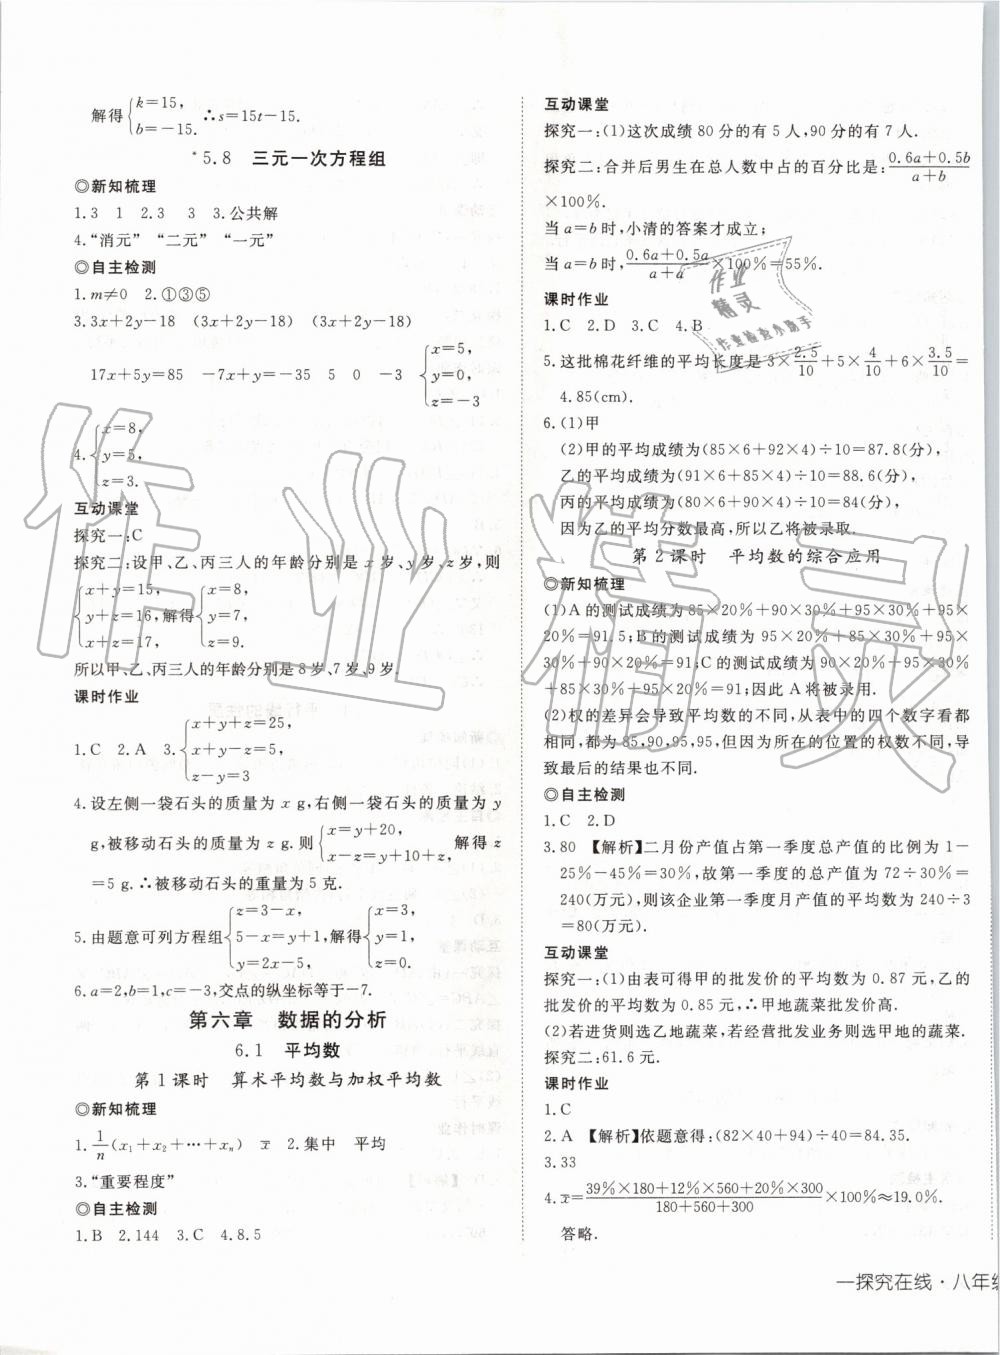 解得{k=15, b=-15. ∴s=15t-15.
*5.8 三元一次方程组
◎新知梳理
1.3 1 2.3 3 3.公共解
4.“消元” “二元” “一元”
◎自主检测
1.m≠0 2.①③⑤
3.3x+2y-18 (3x+2y-18) (3x+2y-18)
17x+5y=85 -7x-y=-35 5 0 -3 {x=5, y=0, z=-3
4.{x=8, y=5, z=3.
互动课堂
探究一:C
探究二:设甲、乙、丙三人的年龄分别是x岁、y岁、z岁,则
{x+y=15, y+z=16, x+z=17, 解得{x=8, y=7, z=9.
所以甲、乙、丙三人的年龄分别是8岁、7岁、9岁.
课时作业
1.C 2.A 3.{x+y+z=25, x+y-5=z, z-y=3
4.设左侧一袋石头的质量为x g,右侧一袋石头的质量为y
g,被移动石头的质量为z g.则{x=y+20, x-z=y+10+z, 解得z
=5 g.∴被移动石头的重量为5克.
5.由题意可列方程组{z=3-x, 5-x=y+1, y=2x-5, 解得{x=3, y=1, z=0.
6.a=2,b=1,c=-3,交点的纵坐标等于-7.
第六章 数据的分析
6.1 平均数
第1课时 算术平均数与加权平均数
◎新知梳理
1.1/n(x₁+x₂+…+xₙ) x̄ 2.集中 平均
3.“重要程度”
◎自主检测
1.B 2.144 3.C 4.8.5
互动课堂
探究一:(1)这次成绩80分的有5人,90分的有7人.
探究二:合并后男生在总人数中占的百分比是:(0.6a+0.5b)/(a+b)
×100%.
当a=b时,小清的答案才成立;
当a=b时,(0.6a+0.5a)/(a+a)×100%=55%.
课时作业
1.C 2.D 3.C 4.B
5.这批棉花纤维的平均长度是3×2.5/10+5×4/10+6×3.5/10=
4.85(cm).
6.(1)甲
(2)甲的平均成绩为(85×6+92×4)÷10=87.8(分),
乙的平均成绩为(91×6+85×4)÷10=88.6(分),
丙的平均成绩为(80×6+90×4)÷10=84(分),
因为乙的平均分数最高,所以乙将被录取.
第2课时 平均数的综合应用
◎新知梳理
(1)A的测试成绩为85×20%+90×30%+95×30%+95×
20%=91.5;B的测试成绩为95×20%+85×30%+95×
30%+90×20%=91;C的测试成绩为90×20%+95×
30%+95×30%+85×20%=92;因此A将被录用.
(2)权的差异会导致平均数的不同,从表中的四个数字看都
相同,都为85,90,95,95,但因为所在的位置的权数不同,导
致最后的结果也不同.
◎自主检测
1.C 2.D
3.80 【解析】二月份产值占第一季度总产值的比例为1-
25%-45%=30%,故第一季度的总产值为72÷30%=
240(万元),则该企业第一季度月产值的平均数为240÷3
=80(万元).
互动课堂
探究一:(1)由表可得甲的批发价的平均数为0.87元,乙的
批发价的平均数为0.85元,∴甲地蔬菜批发价高.
(2)若进货则选乙地蔬菜,若经营批发业务则选甲地的蔬菜.
探究二:61.6元.
课时作业
1.C
2.A 【解析】依题意得:(82×40+94)÷40=84.35.
3.33
4.x̄=(39%×180+12%×560+20%×300)/(180+560+300)×100%≈19.0%.
答略.
一探究在线·八年级
作业精灵
精灵
作业检查小助手